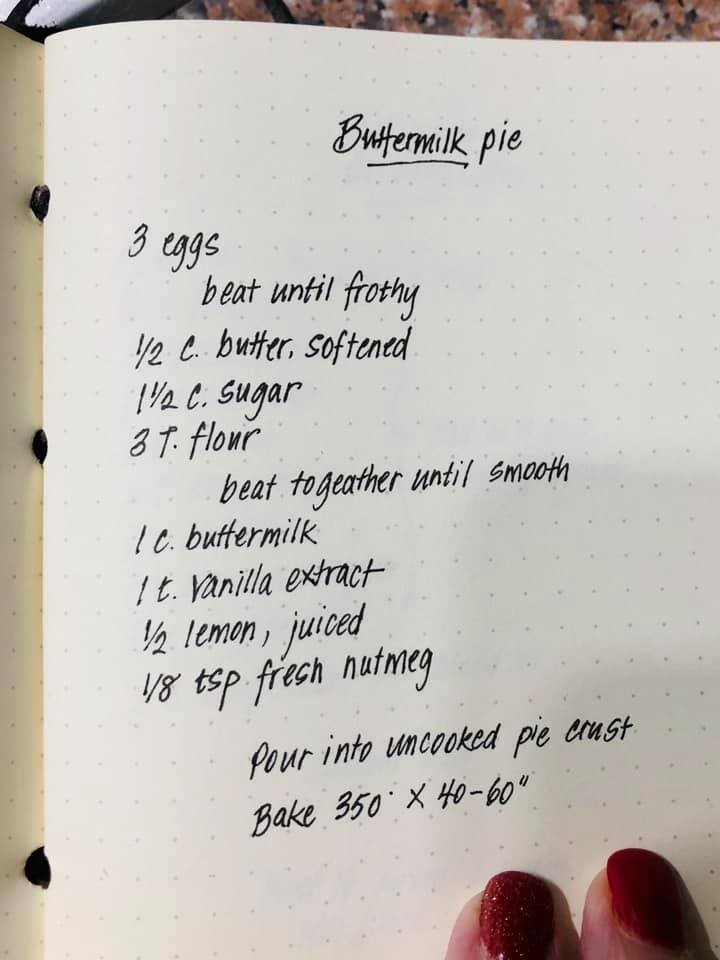 Buttermilk pie
3 eggs
beat until frothy
1/2 c. butter, softened
1 1/2 c. sugar
3 T. flour
beat togeather until smooth
1 c. buttermilk
1 t. vanilla extract
1/2 lemon, juiced
1/8 tsp fresh nutmeg
Pour into uncooked pie crust
Bake 350° x 40-60"